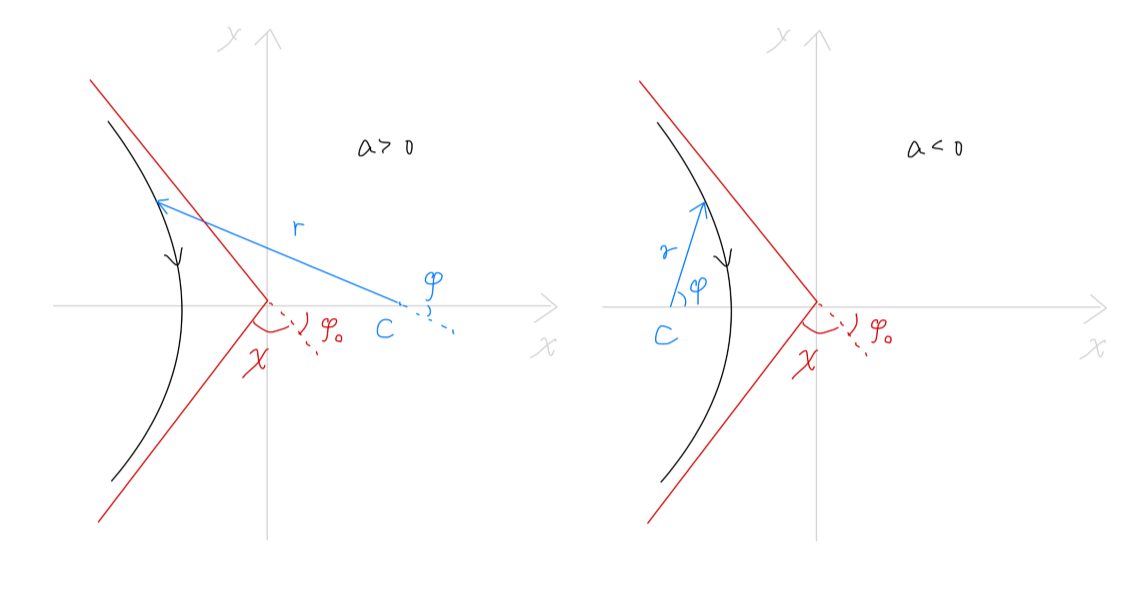 y
a > 0
r
φ
C
φ₀
χ
x
y
a < 0
r
φ
C
φ₀
χ
x